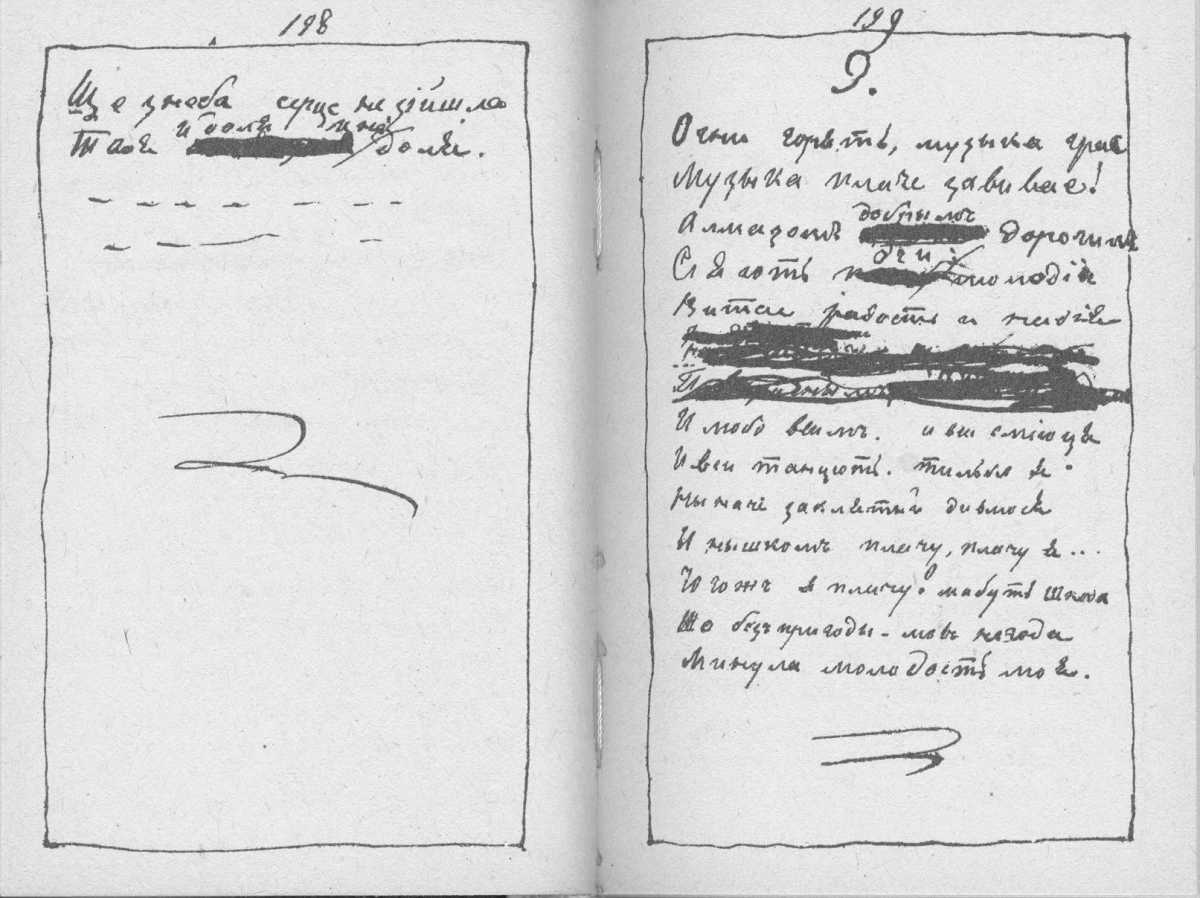 198
Ще з неба серце не зійшла
Такая и доля
доля.
199
9.
Огни горять, музыка грае
Музыка плаче завивае!
Алмазомъ добрымъ дорогимъ
Сіяють очи молодіи
Витае радость и надія
И любо всимъ. и вси сміюця
И вси танцюють. тилько я
Ныначе заклятый дивлюся
И нышкомъ плачу, плачу я...
Чогожъ я плачу? мабуть шкода
Що безъ пригоды - мовъ негода
Минула молодость моя.